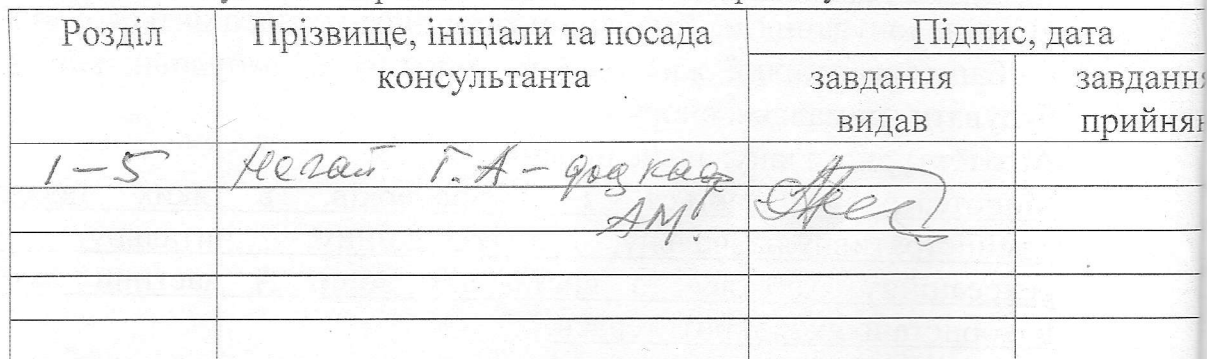 Розділ
Прізвище, ініціали та посада
консультанта
Підпис, дата
завдання
видав
завдання
прийня
1-5
Негай Г.А - доц каф
АМ.